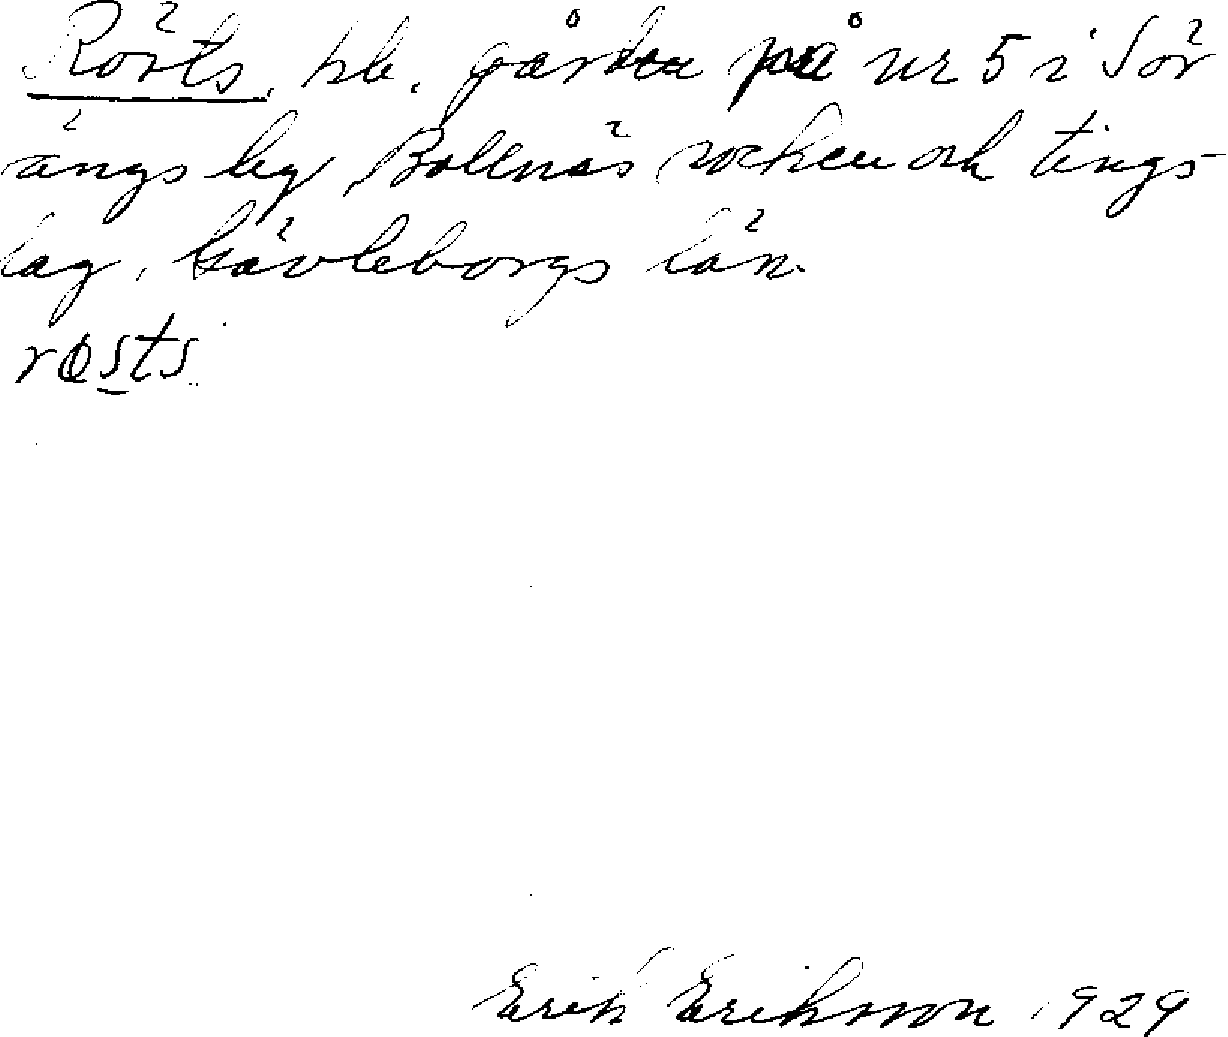 Rörts, hb. gården på nr 5 i Sör
ängs by, Bollnäs socken och tings-
lag, Gävleborgs län.
røsts
Erik Eriksson 1929